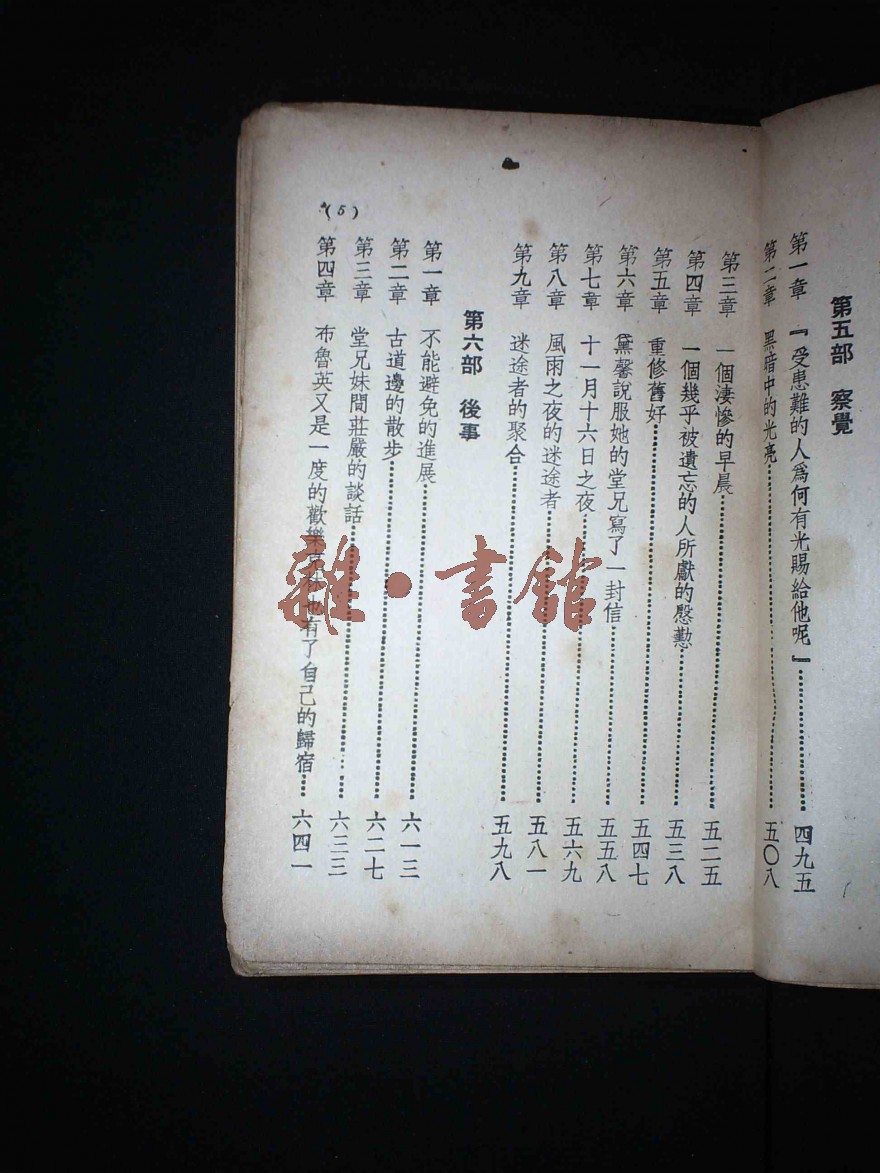 第五部 察覺
第一章 『受患難的人爲何有光賜給他呢』 四九五
第二章 黑暗中的光亮 五〇八
第三章 一個淒慘的早晨 五二五
第四章 一個幾乎被遺忘的人所獻的慇懃 五三八
第五章 重修舊好 五四七
第六章 黛馨說服她的堂兄寫了一封信 五五八
第七章 十一月十六日之夜 五六九
第八章 風雨之夜的迷途者 五八一
第九章 迷途者的聚合 五九八
第六部 後事
第一章 不能避免的進展 六一三
第二章 古道邊的散步 六二七
第三章 堂兄妹間莊嚴的談話 六三三
第四章 布魯英又是一度的歡樂克林也有了自己的歸宿 六四一
(5)
雜·書館